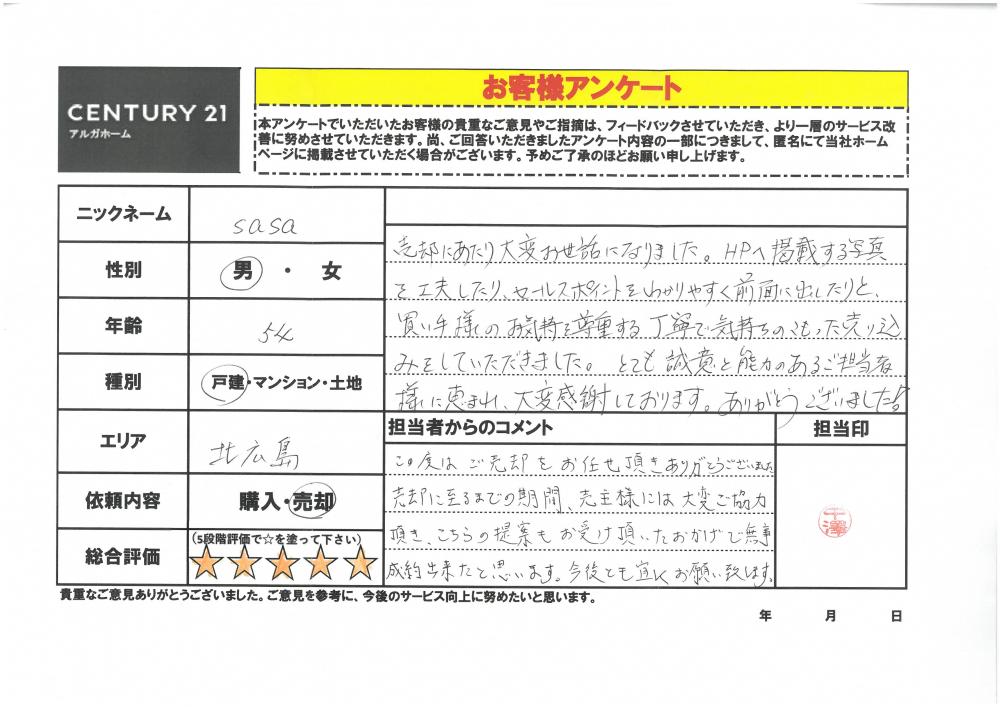 CENTURY 21
アルガホーム
お客様アンケート
本アンケートでいただいたお客様の貴重なご意見やご指摘は、フィードバックさせていただき、より一層のサービス改
善に努めさせていただきます。尚、ご回答いただきましたアンケート内容の一部につきまして、匿名にて当社ホーム
ページに掲載させていただく場合がございます。予めご了承のほどお願い申し上げます。
ニックネーム sasa
性別 男・女
年齢 54
種別 戸建・マンション・土地
エリア 北広島
依頼内容 購入・売却
総合評価 (5段階評価で☆を塗って下さい)
売却にあたり大変お世話になりました。HPへ掲載する写真
を工夫したり、セールスポイントをわかりやすく前面に出したりと、
買い手様のお気持を尊重する丁寧で気持ちのこもった売り込
みをしていただきました。とても誠意と能力のあるご担当者
様に恵まれ、大変感謝しております。ありがとうございました!
担当者からのコメント
担当印
この度はご売却をお任せ頂きありがとうございました
売却に至るまでの期間、売主様には大変ご協力
頂き、こちらの提案もお受け頂いたおかげで無事
成約出来たと思います。今後とも宜しくお願い致します。
千澤
貴重なご意見ありがとうございました。ご意見を参考に、今後のサービス向上に努めたいと思います。
年 月 日